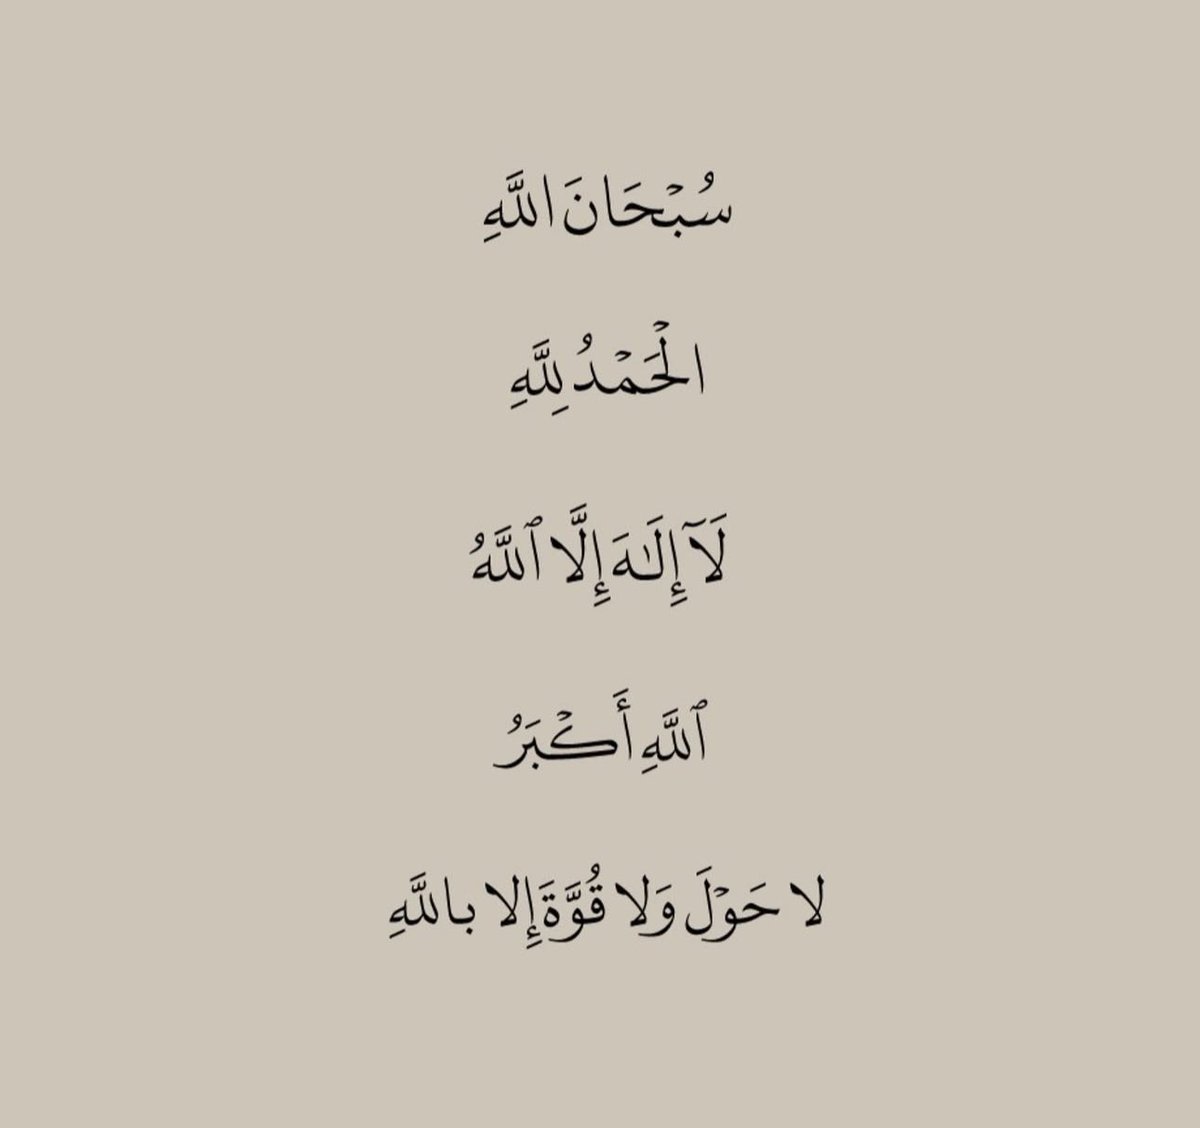 سُبْحَانَ اللَّهِ
الْحَمْدُ لِلَّهِ
لَآ إِلَـٰهَ إِلَّا ٱللَّهُ
ٱللَّهِ أَكْبَرُ
لا حَوْلَ وَلا قُوَّةَ إِلا باللَّهِ